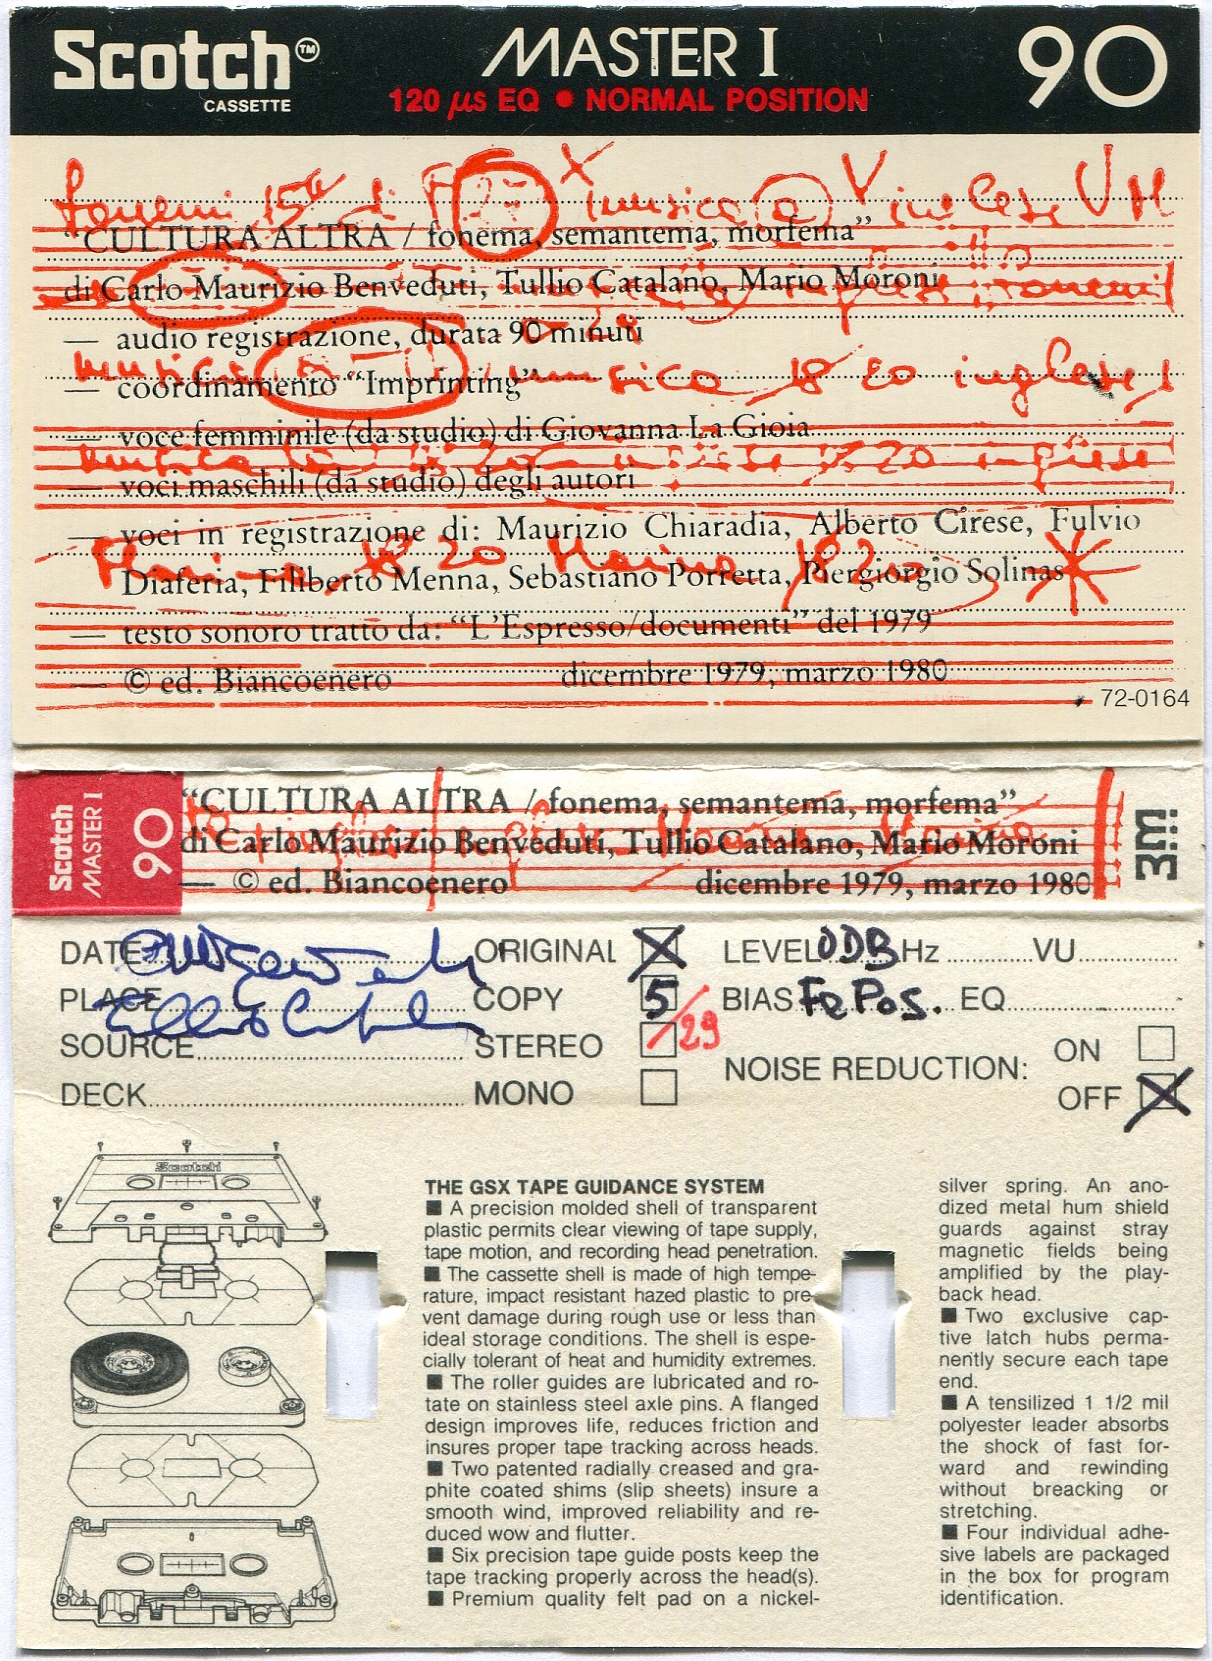 Scotch™ MASTER I 90
CASSETTE 120 µs EQ • NORMAL POSITION
fonemi 15" di X musica a Vinc
"CULTURA ALTRA / fonema, semantema, morfema"
di Carlo Maurizio Benveduti, Tullio Catalano, Mario Moroni
— audio registrazione, durata 90 minuti
musica musica 18 20 inglese
— coordinamento "Imprinting"
— voce femminile (da studio) di Giovanna La Gioia
musica 20
— voci maschili (da studio) degli autori
— voci in registrazione di: Maurizio Chiaradia, Alberto Cirese, Fulvio
Diaferia, Filiberto Menna, Sebastiano Porretta, Piergiorgio Solinas
— testo sonoro tratto da: "L'Espresso/documenti" del 1979
— © ed. Biancoenero dicembre 1979, marzo 1980
72-0164
Scotch
MASTER I
90
"CULTURA ALTRA / fonema, semantema, morfema"
di Carlo Maurizio Benveduti, Tullio Catalano, Mario Moroni
— © ed. Biancoenero dicembre 1979, marzo 1980
3M
DATE ORIGINAL X LEVEL 0DB Hz VU
PLACE Tullio Catalano COPY 5/29 BIAS Fe Pos. EQ
SOURCE STEREO
NOISE REDUCTION: ON
DECK MONO OFF X
Scotch
THE GSX TAPE GUIDANCE SYSTEM
■ A precision molded shell of transparent
plastic permits clear viewing of tape supply,
tape motion, and recording head penetration.
■ The cassette shell is made of high tempe-
rature, impact resistant hazed plastic to pre-
vent damage during rough use or less than
ideal storage conditions. The shell is espe-
cially tolerant of heat and humidity extremes.
■ The roller guides are lubricated and ro-
tate on stainless steel axle pins. A flanged
design improves life, reduces friction and
insures proper tape tracking across heads.
■ Two patented radially creased and gra-
phite coated shims (slip sheets) insure a
smooth wind, improved reliability and re-
duced wow and flutter.
■ Six precision tape guide posts keep the
tape tracking properly across the head(s).
■ Premium quality felt pad on a nickel-
silver spring. An ano-
dized metal hum shield
guards against stray
magnetic fields being
amplified by the play-
back head.
■ Two exclusive cap-
tive latch hubs perma-
nently secure each tape
end.
■ A tensilized 1 1/2 mil
polyester leader absorbs
the shock of fast for-
ward and rewinding
without breacking or
stretching.
■ Four individual adhe-
sive labels are packaged
in the box for program
identification.